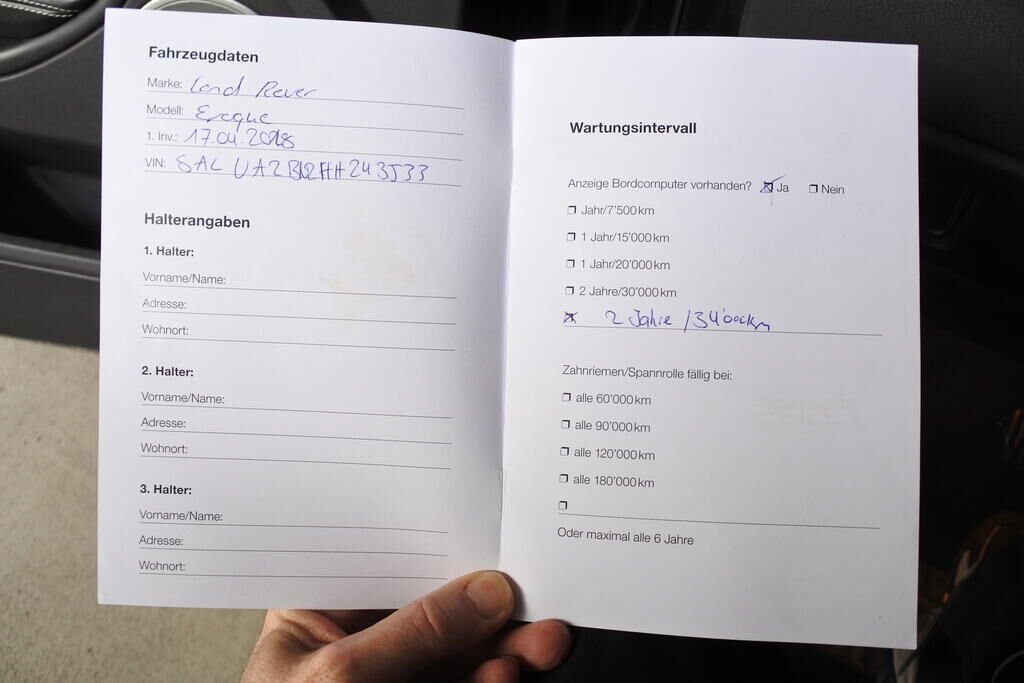 Fahrzeugdaten
Marke: Land Rover
Modell: Evoque
1. Inv.: 17.04.2018
VIN: SAL
Halterangaben
1. Halter:
Vorname/Name:
Adresse:
Wohnort:
2. Halter:
Vorname/Name:
Adresse:
Wohnort:
3. Halter:
Vorname/Name:
Adresse:
Wohnort:
Wartungsintervall
Anzeige Bordcomputer vorhanden? ☒ Ja ☐ Nein
☐ Jahr/7'500 km
☐ 1 Jahr/15'000 km
☐ 1 Jahr/20'000 km
☐ 2 Jahre/30'000 km
☒ 2 Jahre /34'000km
Zahnriemen/Spannrolle fällig bei:
☐ alle 60'000 km
☐ alle 90'000 km
☐ alle 120'000 km
☐ alle 180'000 km
☐
Oder maximal alle 6 Jahre